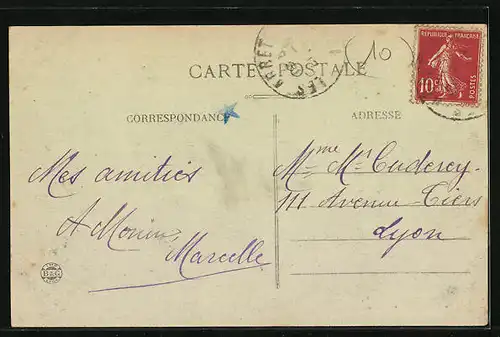 CARTE POSTALE
10
RÉPUBLIQUE FRANÇAISE
10c
POSTES
CORRESPONDANCE
ADRESSE
Mes amitiés
A Monin
Marcelle
Mme Mr Cuderey
111 Avenue Tiers
Lyon
B&G